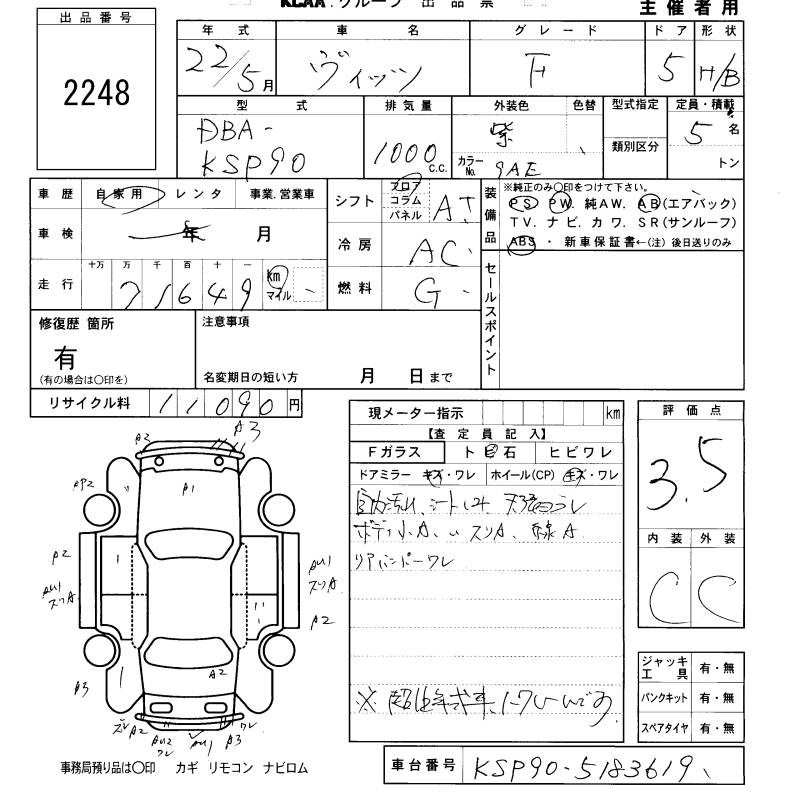 KCAA.グループ 出品票 主催者用
出品番号
2248
年式 車名 グレード ドア 形状
22/5月 ヴィッツ F 5 H/B
型式 排気量 外装色 色替 型式指定 定員・積載
DBA-
KSP90
1000 c.c.
紫
カラーNo. 9AE
類別区分
5名
トン
車歴 自家用 レンタ 事業.営業車
車検 年 月
走行 十万 万 千 百 十 一
71649 km マイル
シフト フロア コラム パネル AT
冷房 AC
燃料 G
装備品
※純正のみ○印をつけて下さい。
PS. PW. 純AW. AB(エアバック)
TV. ナビ. カワ. SR(サンルーフ)
ABS ・ 新車保証書←(注) 後日送りのみ
セールスポイント
修復歴 箇所
有
(有の場合は○印を)
注意事項
名変期日の短い方 月 日まで
リサイクル料 11090円
現メーター指示 km
【査定員記入】
Fガラス トビ石 ヒビワレ
ドアミラー キズ・ワレ ホイール(CP) キズ・ワレ
ボディ小A、
リアバンパーワレ
評価点
3.5
内装 外装
C C
ジャッキ工具 有・無
パンクキット 有・無
スペアタイヤ 有・無
A2 A3
AP2 P1
P2
AU1
スリA
AU1
スリA
A2
A2
A3
A2 AU2 ワレ AU1 A3 ワレ
事務局預り品は○印 カギ リモコン ナビロム
車台番号 KSP90-5183619